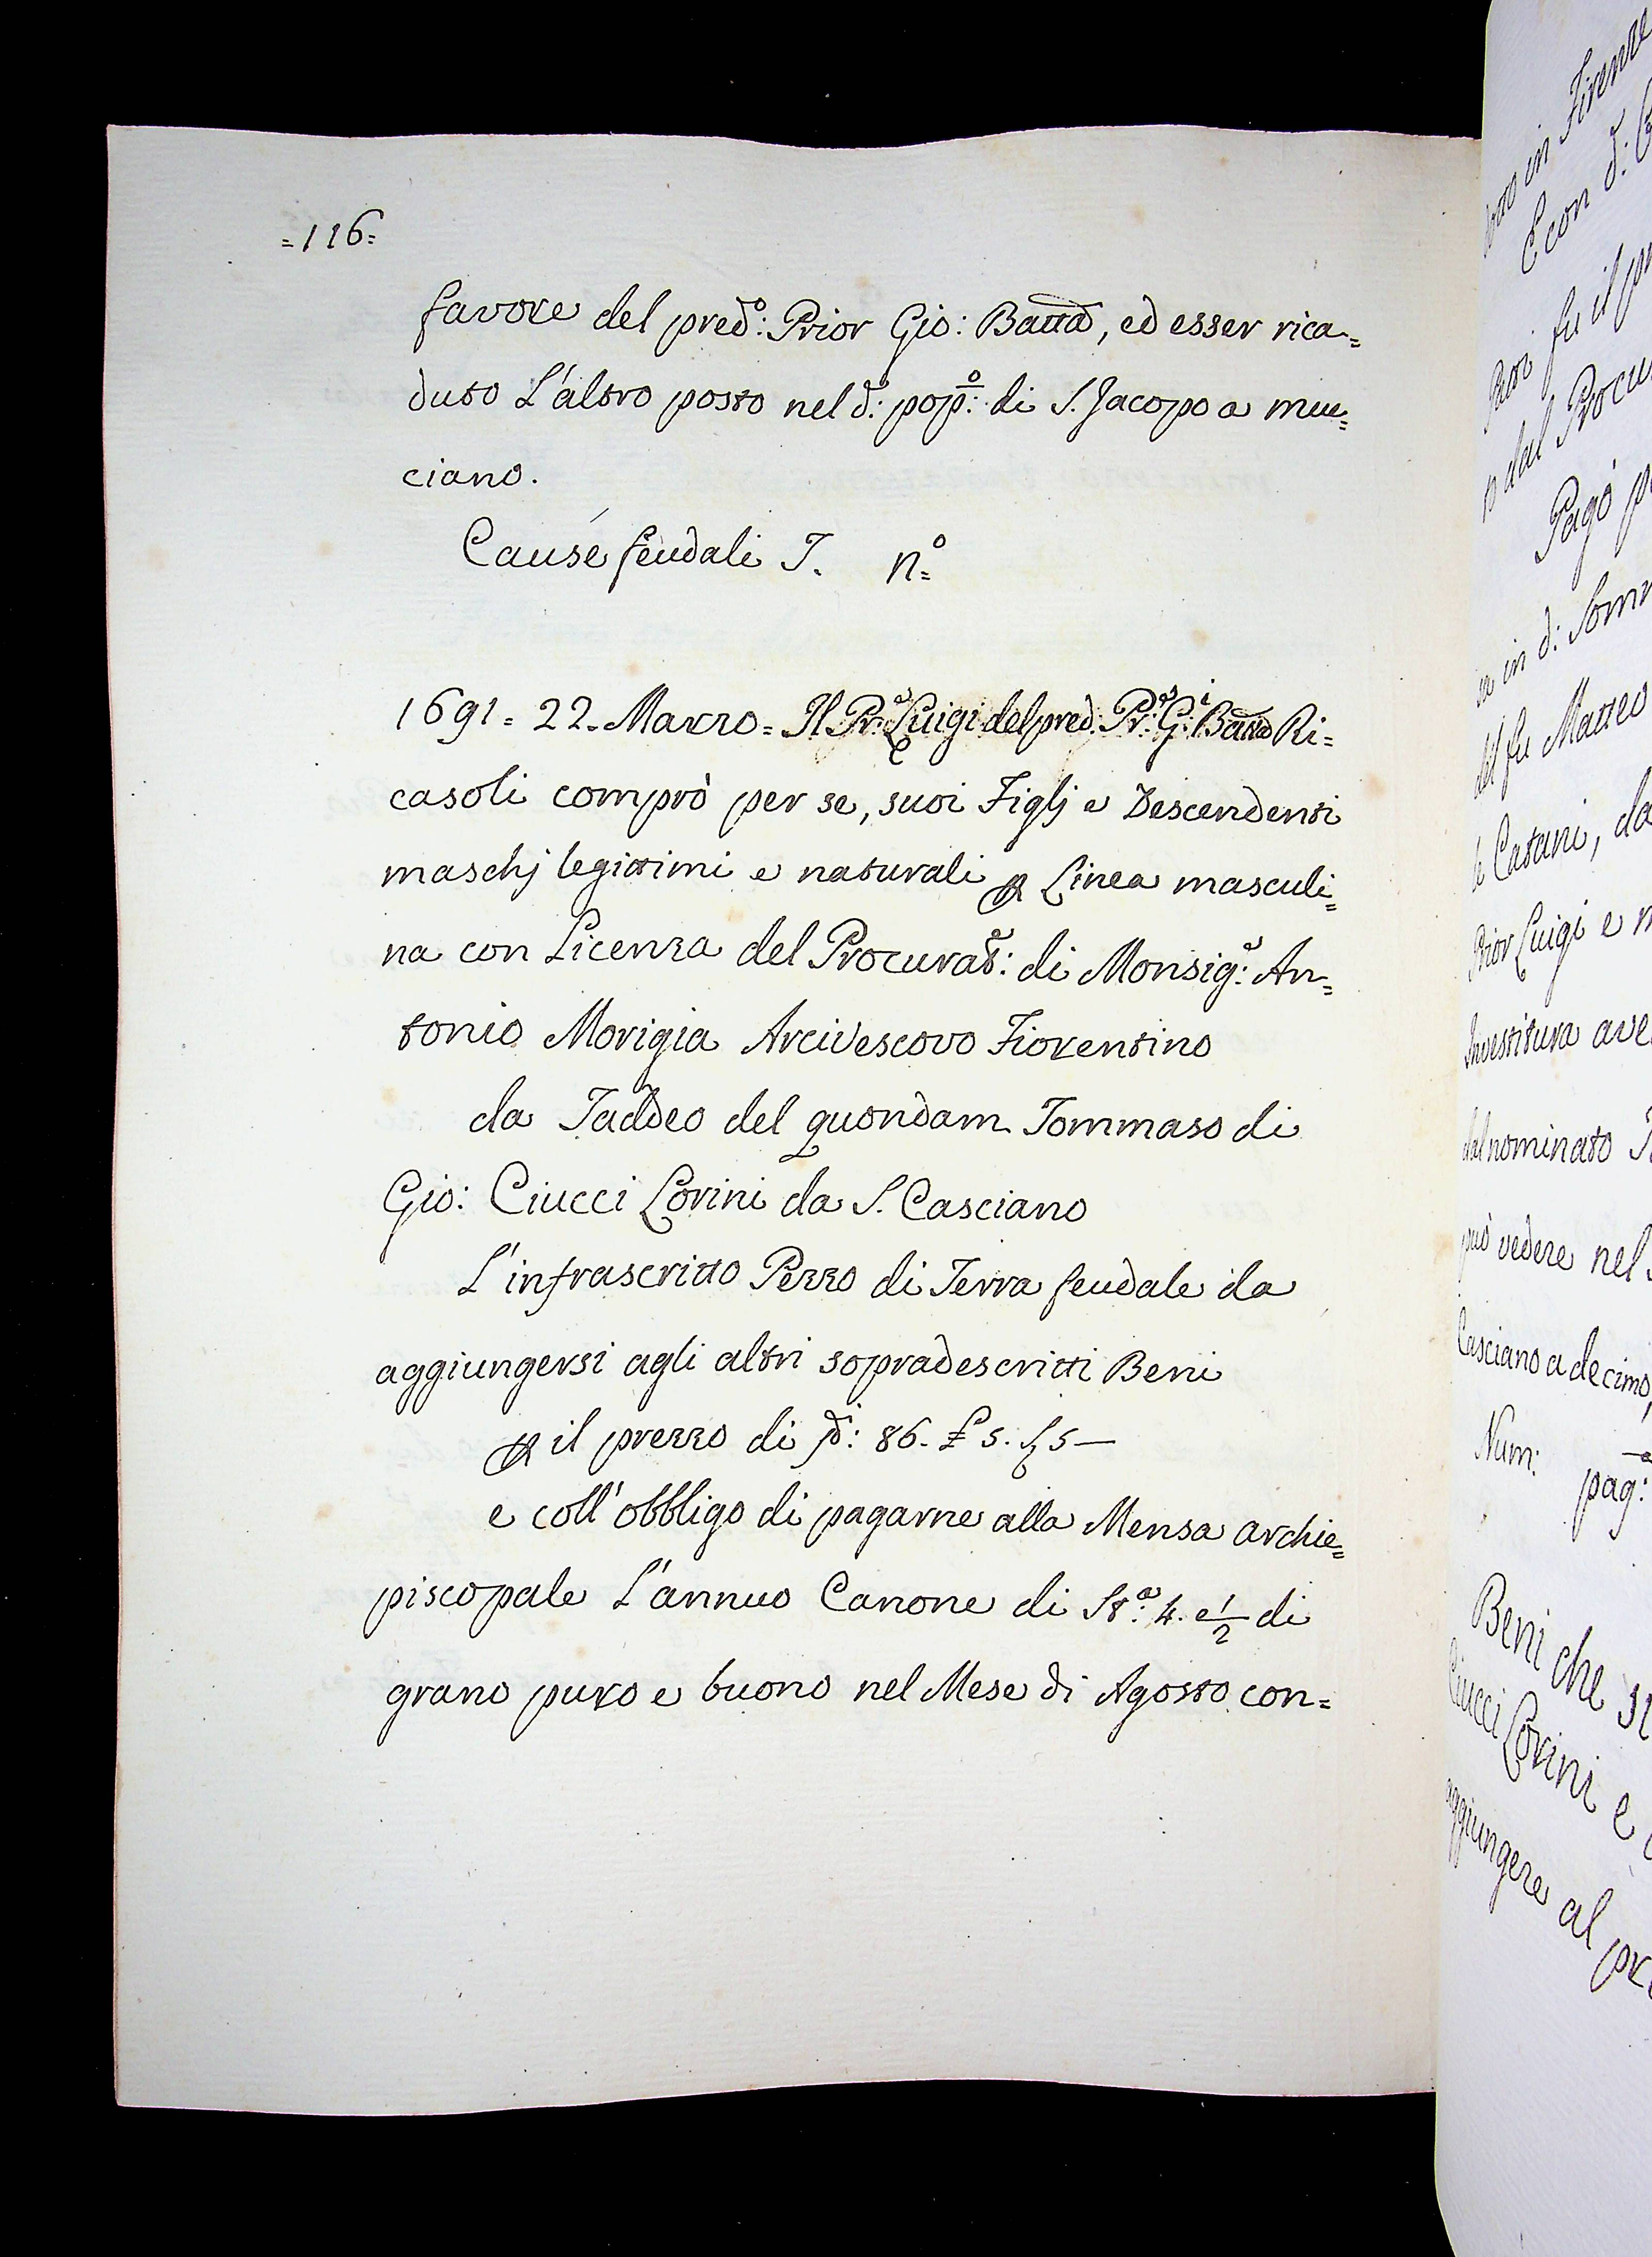 =116=
favore del pred.º: Prior Gio: Batta, ed esser rica=
duto L'altro posto nel d.º: pop.º: di S. Jacopo a muc=
ciano.
Cause feudali T. n.º
1691 = 22. Marzo = Il Pr.e Luigi del pred. Pr.e G.i Batta Ri=
casoli comprò per se, suoi Figlj e Descendenti
maschj legittimi e naturali ꝑ Linea masculi=
na con Licenza del Procurat.e: di Monsig.e: An=
tonio Morigia Arcivescovo Fiorentino
da Taddeo del quondam Tommaso di
Gio: Ciucci Lorini da S. Casciano
L'infrascritto Pezzo di Terra feudale da
aggiungersi agli altri sopradescritti Beni
ꝑ il prezzo di 86. £ 5. 5 —
e coll'obbligo di pagarne alla Mensa archie=
piscopale L'annuo Canone di St.a 4. e 1/2 di
grano puro e buono nel Mese di Agosto con=
in Firenze
E con d:
fu il
dal Procu
Pagò
in d: Somm
del fu Matteo
Catani, da
Prior Luigi e
Investitura ave
dal nominato
può vedere nel
Casciano a decimo,
Num: pag:
Beni che
Ciucci Lorini e
aggiungere al